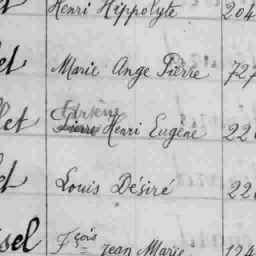 Henri Hippolyte 204
et Marie Ange Pierre 727
let Pierre Henri Eugène 22
et Louis Désiré 22
sel Fçois Jean Marie 124